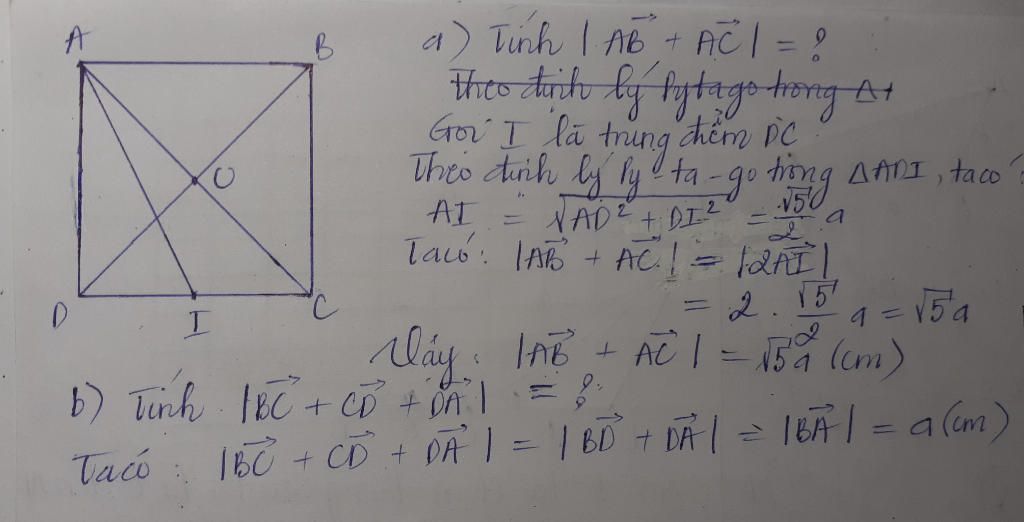 A
B
O
D
I
C
a) Tính |AB→ + AC→| = ?
Theo định lý Pytago trong Δ1
Gọi I là trung điểm DC
Theo định lý Py-ta-go trong ΔADI, ta có:
AI = √(AD² + DI²) = √5/2 a
Ta có: |AB→ + AC→| = |2AI→|
= 2 . √5/2 a = √5a
Vậy: |AB→ + AC→| = √5a (cm)
b) Tính |BC→ + CD→ + DA→| = ?
Ta có: |BC→ + CD→ + DA→| = |BD→ + DA→| = |BA→| = a (cm)